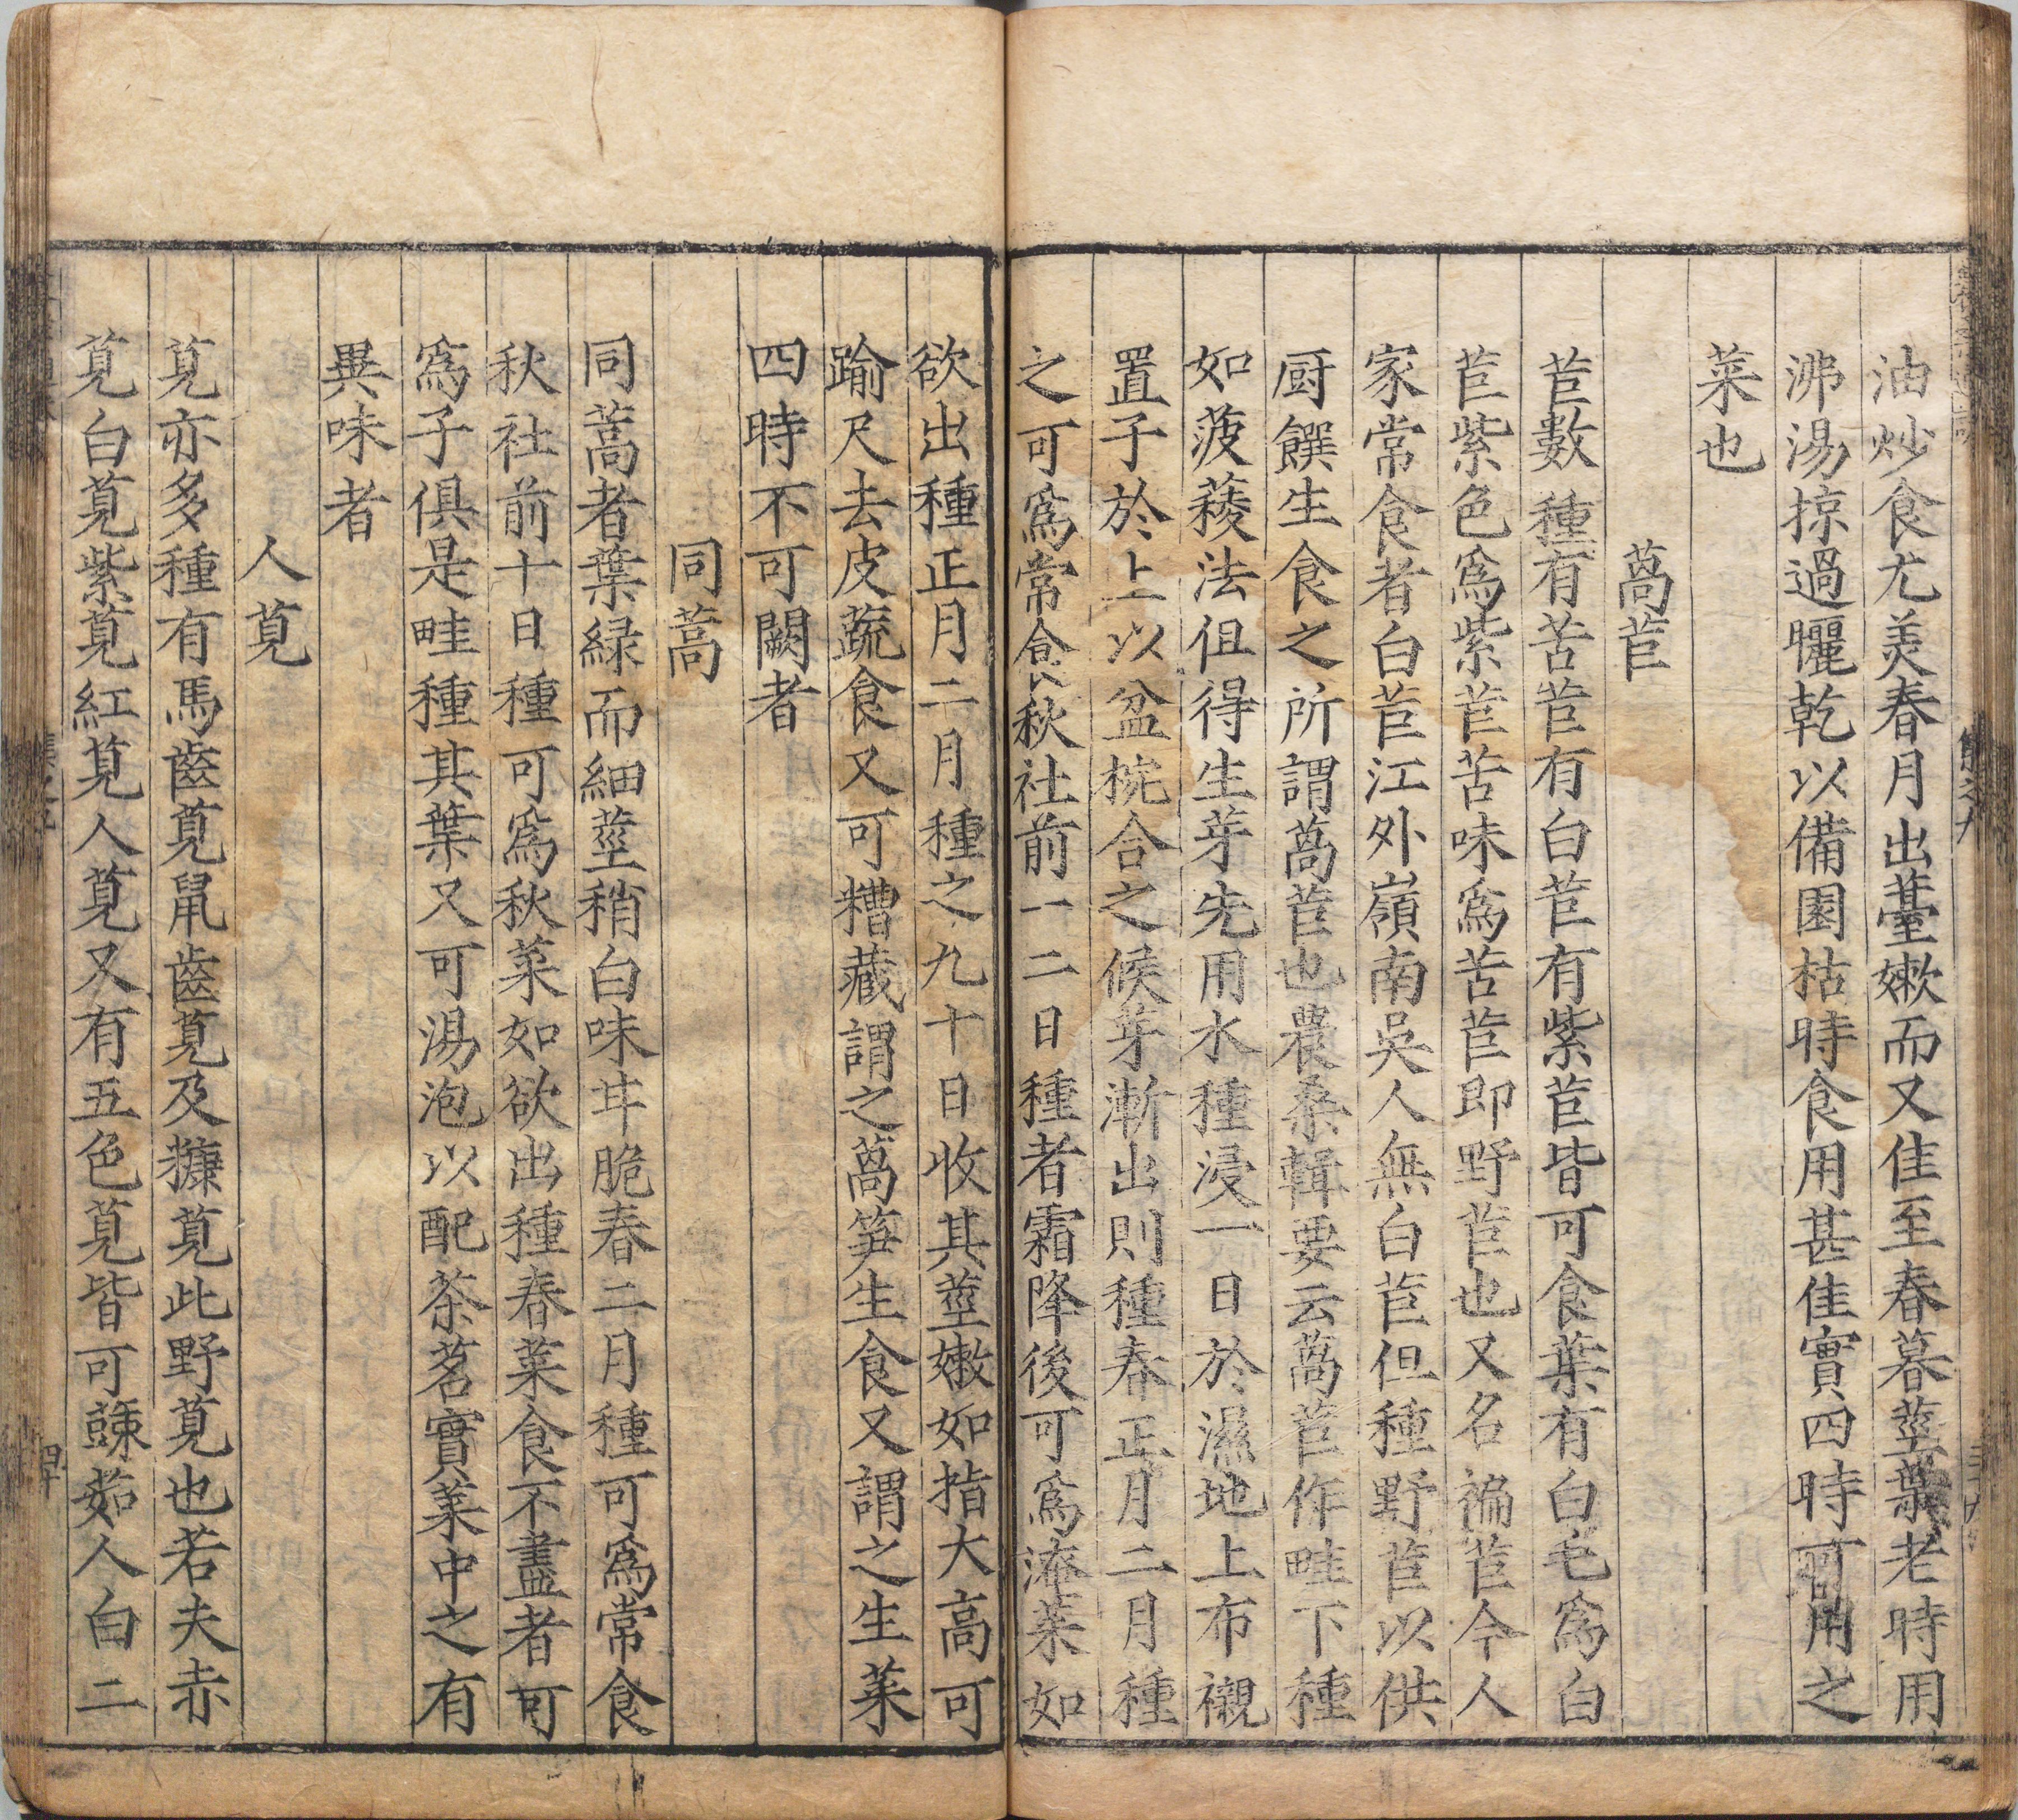 油炒食尤美春月出薹嫰而又佳至春暮莖葉老時用
沸湯掠過曬乾以備園枯時食用甚佳實四時可用之
菜也
萵苣
苣數種有苦苣有白苣有紫苣皆可食葉有白毛爲白
苣紫色爲紫苣苦味爲苦苣即野苣也又名褊苣今人
家常食者白苣江外嶺南吳人無白苣但種野苣以供
厨饌生食之所謂萵苣也農桑輯要云萵苣作畦下種
如菠薐法伹得生芽先用水種浸一日於濕地上布襯
置子於上以盆椀合之候芽漸出則種春正月二月種
之可爲常食秋社前一二日種者霜降後可爲淹菜如
欲出種正月二月種之九十日收其莖嫩如指大高可
踰尺去皮蔬食又可糟藏謂之萵笋生食又謂之生菜
四時不可闕者
同蒿
同蒿者葉緑而細莖稍白味甘脆春二月種可爲常食
秋社前十日種可爲秋菜如欲出種春菜食不盡者可
爲子俱是畦種其葉又可湯泡以配茶茗實菜中之有
異味者
人莧
莧亦多種有馬齒莧鼠齒莧及糠莧此野莧也若夫赤
莧白莧紫莧紅莧人莧又有五色莧皆可蔬茹人白二